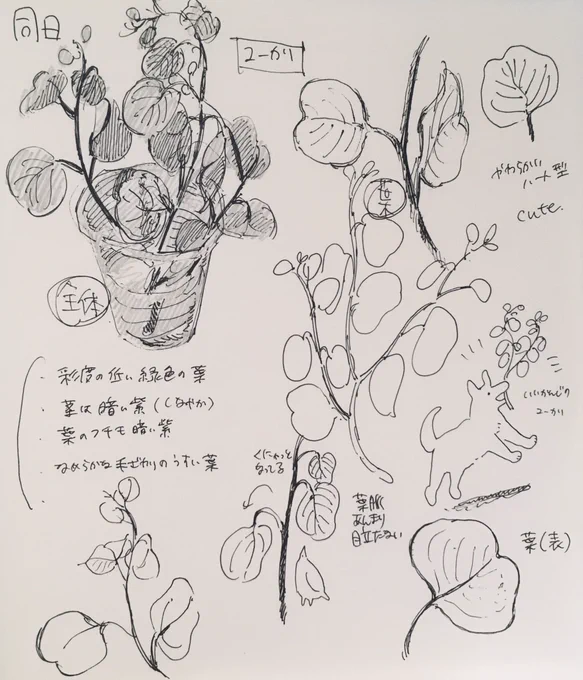 同日
ユーかり
やわらかい
ハート型
cute.
全体
・彩度の低い緑色の葉
・茎は暗い紫(しなやか)
・葉のフチモ暗い紫
・なめらかな毛ざわりのうすい葉
くにゃっと
なってる
葉脈
あんまり
目立たない
いいかんじの
ユーかり
葉(表)